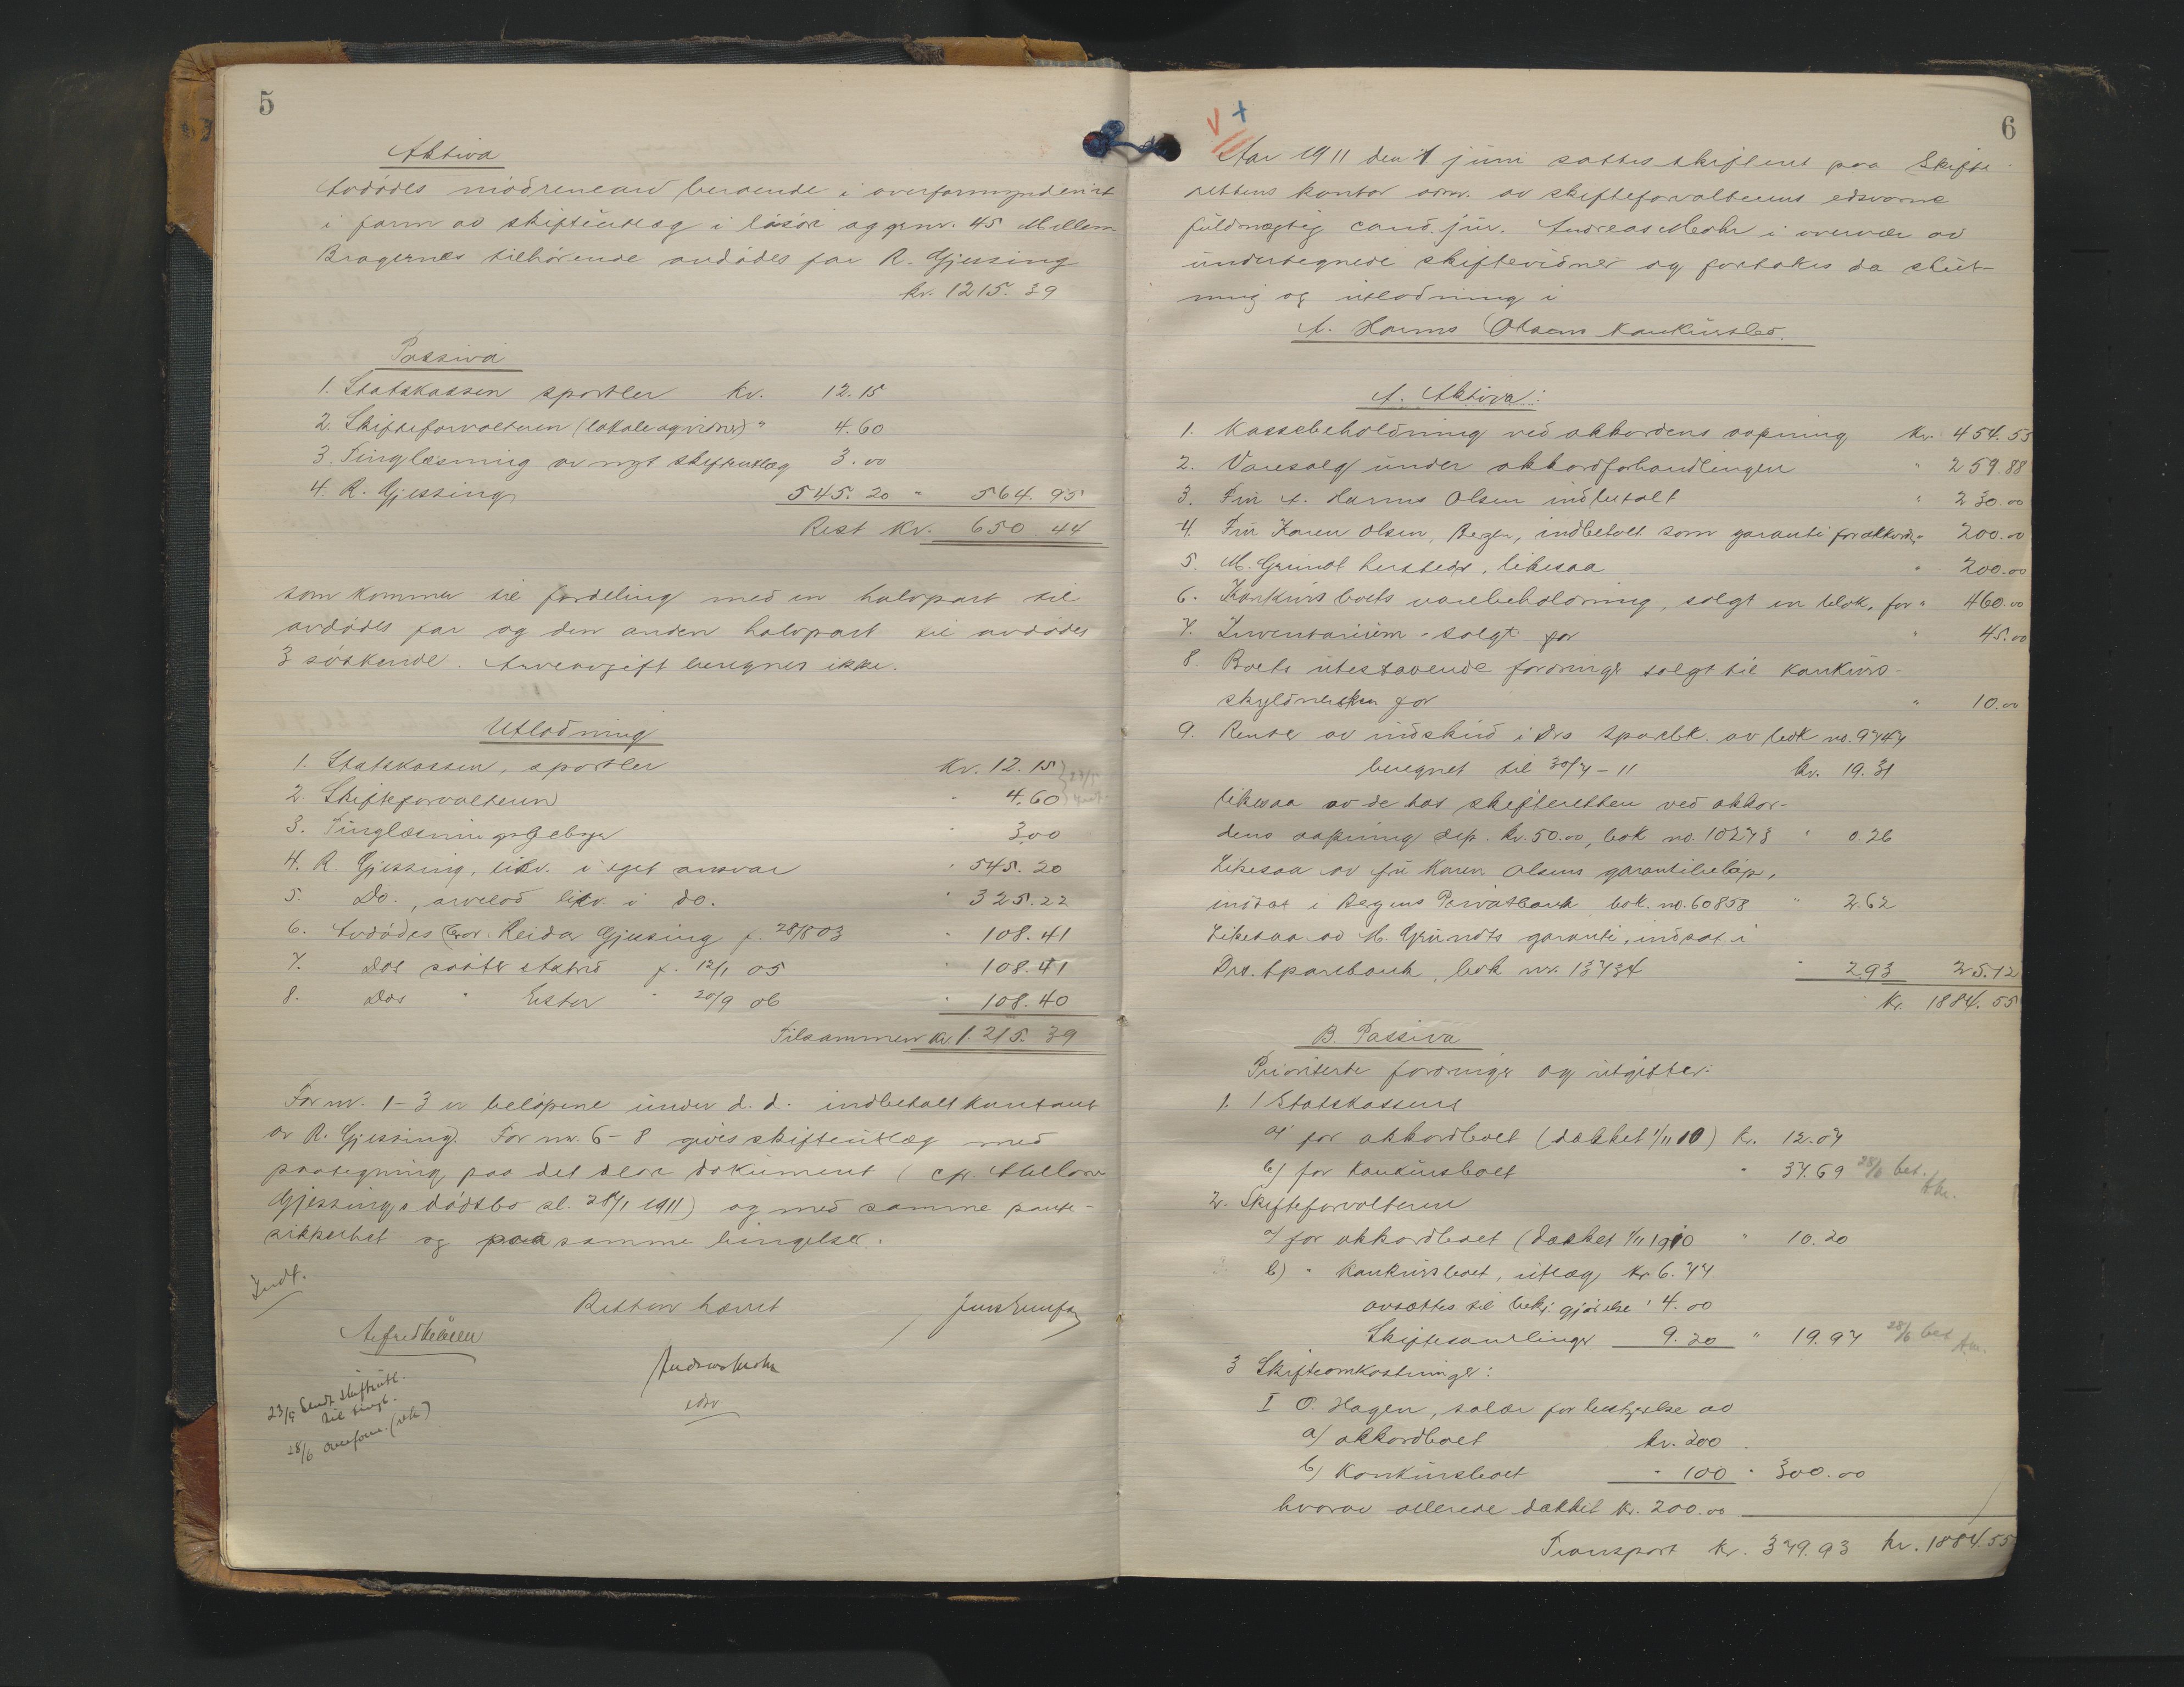 5
Aktiva
Avdødes mødrenearv beroende i overformynderiet
i form av skifteutlæg i løsøre og grnr. 45 Mellem
Bragernes tilhørende avdødes far R. Gjessing
kr. 1215.39
Passiva
1. Statskassen sportler kr. 12.15
2. Skifteforvalteren (lokale og vidner) " 4.60
3. Tinglæsning av nyt skifteutlæg 3.00
4. R. Gjessing 545.20 " 564.95
Rest kr. 650.44
som kommer til fordeling med en halvpart til
avdødes far og den anden halvpart til avdødes
3 søskende. Arveavgift beregnes ikke.
Utlodning
1. Statskassen, sportler kr. 12.15
2. Skifteforvalteren " 4.60
3. Tinglæsningsgebyr " 3.00
4. R. Gjessing, likv. i eget ansvar " 545.20
5. Do., arvelod likv. i do. " 325.22
6. Avdødes bror Reidar Gjessing f. 28/8 03 " 108.41
7. Dos søster f. 12/1 05 " 108.41
8. Dos " Ester " 20/9 06 " 108.40
Tilsammen kr. 1.215.39
For nr. 1-3 er beløpene under d.d. indbetalt kontant
av R. Gjessing. For nr. 6-8 gives skifteutlæg med
paategning paa det ældre dokument (cfr.
Gjessings dødsbo sl. 28/1 1911) og med samme pante-
sikkerhet og paa samme betingelser.
Indf.
Retten hævet
Andreas Mohr
edsv
23/5 Sendt skifteutl.
til tingl.
28/6 overform. (rek)
6
V +
Aar 1911 den 1 juni sattes skifteret paa Skifte-
rettens kontor adm. av skifteforvalterens edsvorne
fuldmægtig cand. jur. Andreas Mohr i overvær av
undertegnede skiftevidner og foretokes da slut-
ning og utlodning i
A. Harms Olsens konkursbo.
A. Aktiva:
1. Kassebeholdning ved akkordens aapning kr. 454.55
2. Varesalg under akkordforhandlingen " 259.88
3. Fru A. Harms Olsen indbetalt " 230.00
4. Fru Karen Olsen, Bergen, indbetalt som garanti for akkorden 200.00
5. M. Grundt hersteds, likesaa " 200.00
6. Konkursboets varebeholdning, solgt en blok, for " 460.00
7. Inventarium - solgt for " 45.00
8. Boets utestaaende fordringer solgt til konkurs-
skyldnersken for " 10.00
9. Renter av indskud i Drs Sparebk. av bok no. 9747
beregnet til 30/4 - 11 kr. 19.31
likesaa av de hos skifteretten ved akkor-
dens aapning dep. kr. 50.00, bok no. 10273 " 0.26
Likesaa av fru Karen Olsens garantibeløp,
indsat i Bergens Privatbank, bok no. 60858 " 2.62
Likesaa av M. Grundts garanti, indsat i
Drs. Sparebank, bok nr. 13734 " 2.93 25.12
kr. 1884.55
B. Passiva
Prioriterte fordringer og utgifter:
1. I Statskassen
a) for akkordboet (dækket 1/11 10) kr. 12.07
b) for konkursboet " 37.69 28/6 bet. AM.
2. Skifteforvalteren
a) for akkordboet (dækket 1/11 1910 " 10.20
b) " konkursboet, utlæg kr. 6.77
avsættes til bekj. gjørelse " 4.00
Skiftesamlinger 9.20 " 19.97 28/6 bet. AM.
3 Skifteomkostninger:
I O. Hagen, salær for bestyrelse av
a) akkordboet kr. 200
b) konkursboet " 100 " 300.00
hvorav allerede dækket kr. 200.00
Transport kr. 379.93 kr. 1884.55